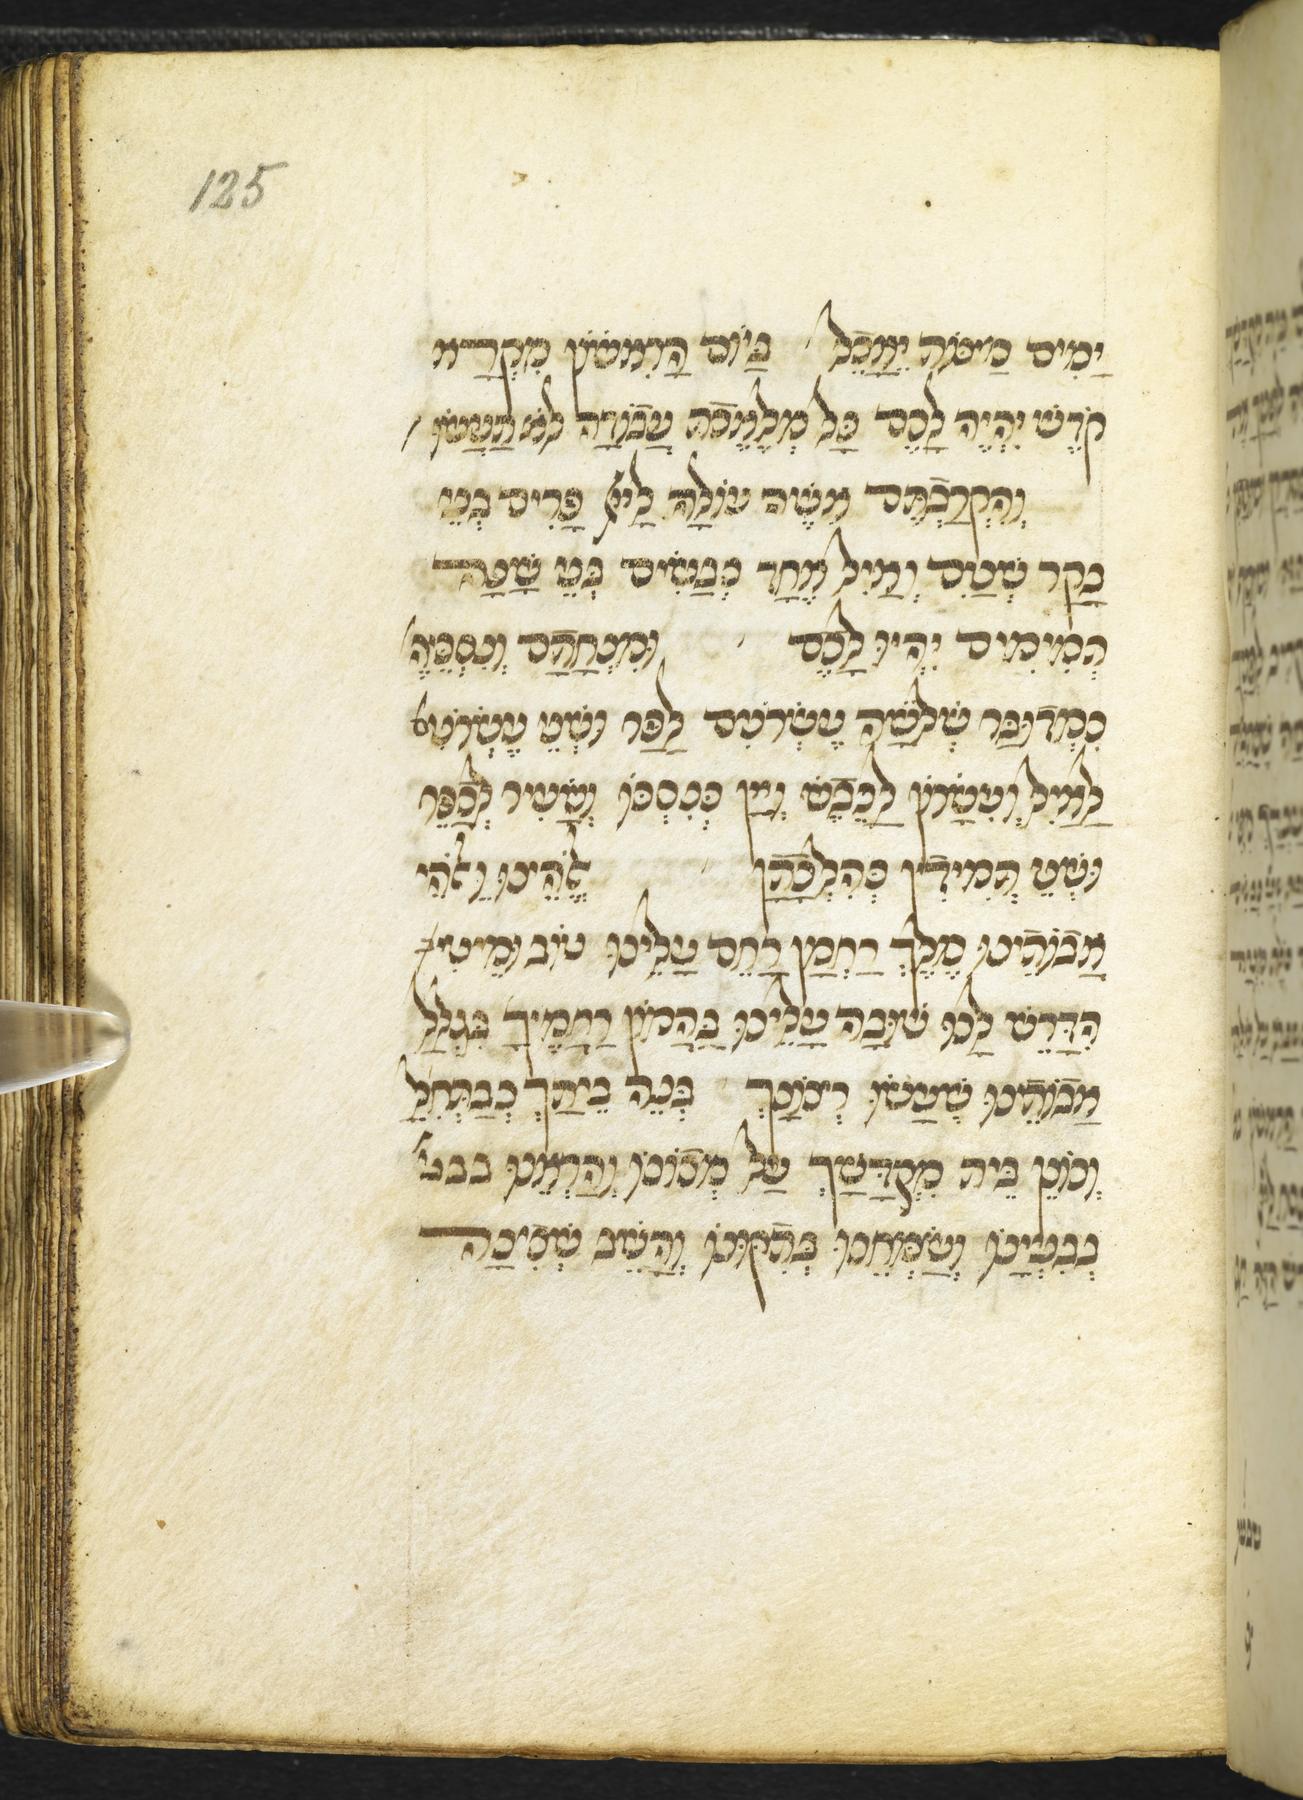 125
יָמִים מַצּוֹת יֵאָכֵל בַּיּוֹם הָרִאשׁוֹן מִקְרָא
קֹדֶשׁ יִהְיֶה לָכֶם כָּל מְלֶאכֶת עֲבוֹדָה לֹא תַעֲשׂוּ
וְהִקְרַבְתֶּם אִשֶּׁה עוֹלָה לַייָ פָּרִים בְּנֵי
בָקָר שְׁנַיִם וְאַיִל אֶחָד כְּבָשִׂים בְּנֵי שָׁנָה
תְּמִימִים יִהְיוּ לָכֶם וּמִנְחָתָם וְנִסְכֵּיהֶ
כִּמְדוּבָּר שְׁלֹשָׁה עֶשְׂרֹנִים לַפָּר וּשְׁנֵי עֶשְׂרֹנִ
לָאַיִל וְעִשָּׂרוֹן לַכֶּבֶשׂ וְיַיִן כְּנִסְכּוֹ וְשָׂעִיר לְכַפֵּר
וּשְׁנֵי תְּמִידִין כְּהִלְכָתָן אֱלֹהֵינוּ וֵאלֹהֵי
אֲבוֹתֵינוּ מֶלֶךְ רַחְמָן רַחֵם עָלֵינוּ טוֹב וּמֵיטִי
הִדָּרֵשׁ לָנוּ שׁוּבָה עָלֵינוּ בַּהֲמוֹן רַחֲמֶיךָ בִּגְלַל
אָבוֹת שֶׁעָשׂוּ רְצוֹנָךְ בְּנֵה בֵיתָךְ כְּבַתְּחִלָּ
וְכוֹנֵן בֵּית מִקְדָּשָׁךְ עַל מְכוֹנוֹ וְהַרְאֵנוּ
בְּבִנְיָנוֹ וְשַׂמְּחֵנוּ בְּתִקּוּנוֹ וְהָשֵׁב שְׁכִינָה